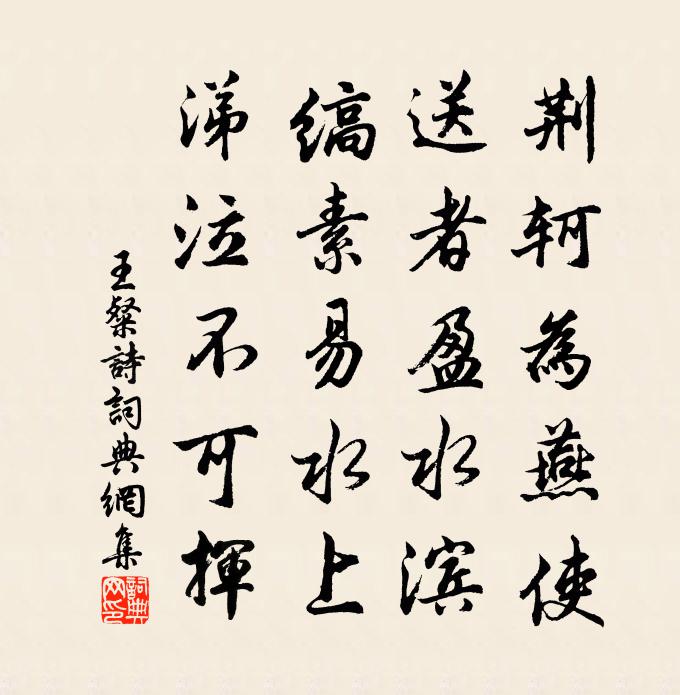 荆轲為燕使
送者盈水滨
缟素易水上
涕泣不可揮
王粲詩詞典網集
詞典网印